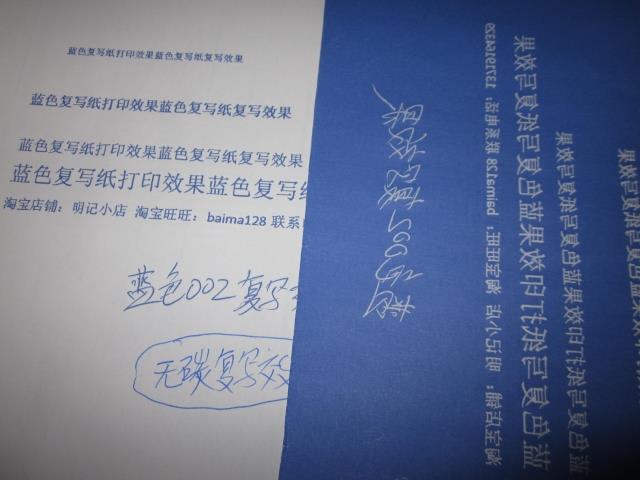 蓝色复写纸打印效果蓝色复写纸复写效果
蓝色复写纸打印效果蓝色复写纸复写效果
蓝色复写纸打印效果蓝色复写纸复写效果
蓝色复写纸打印效果蓝色复写
淘宝店铺：明记小店 淘宝旺旺：baima128 联系
蓝色002复写
无碳复写效
蓝色002复写效果
淘宝店铺：明记小店 淘宝旺旺：baima128 联系电话：
蓝色复写纸打印效果蓝色复写纸复写效果
蓝色复写纸打印效果蓝色复写纸复写效果
蓝色复写纸复写效果